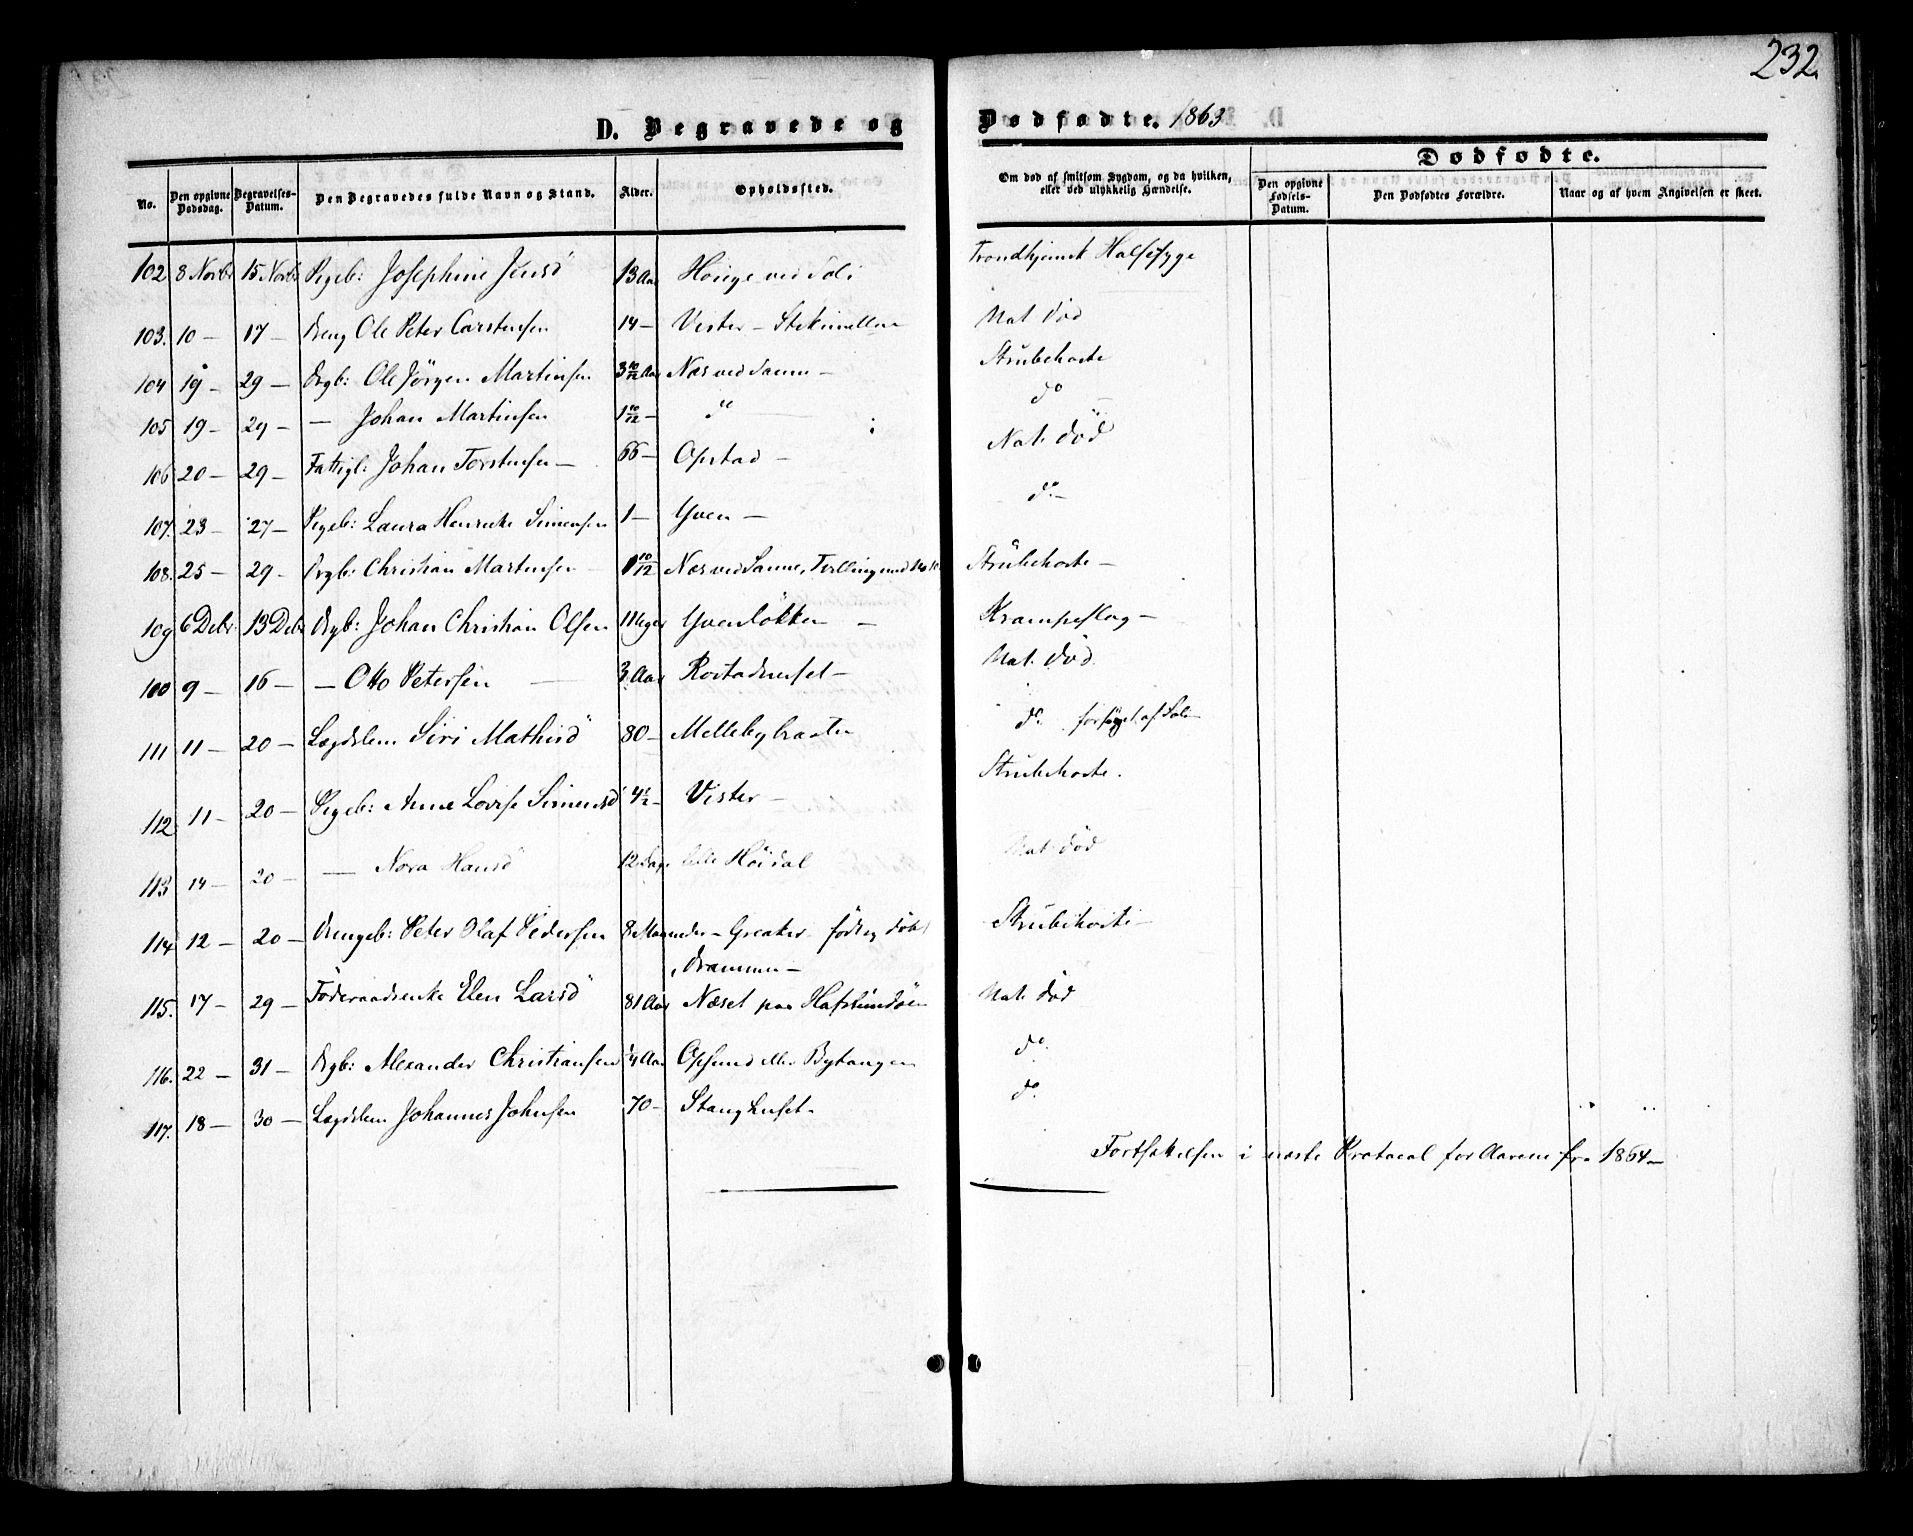 232.
D. Begravede og Dødfødte. 1863
No.
Den opgivne Dødsdag.
Begravelses-Datum.
Den Begravedes fulde Navn og Stand.
Alder.
Opholdssted.
Om død af smitsom Sygdom, og da hvilken, eller ved ulykkelig Hændelse.
Dødfødte.
Den opgivne Fødsels-Datum.
Den Dødfødtes Forældre.
Naar og af hvem Angivelsen er skeet.
102. 8 Novbr 15 Novbr Pigeb: Josephine Jensd 13 Aar Hauge ved Trondhjemsk Halssyge
103. 10 — 17 — Dreng Ole Peter Carstensen 14 — Vister — Nat. død
104 19 — 29 — Drgb: Ole Jörgen Martinsen 3 10/12 Aar Næs ved Sanne — Strubehoste
105 19 — 29 — — Johan Martinsen 1 10/12 — do do
106 20 — 29 — Fattigl: Johan Torstensen — 66 — Opstad — Nat. död
107. 23 — 27 — Pigeb: Laura Henrikke Simensen 1 — Yven — do —
108. 25 — 29 — Drgb: Christian Martinsen 1 10/12 Næs ved Sanne, Tvilling med No Strubehoste —
109 6 Debr 13 Debr Drgb: Johan Christian Olsen 11 Uger Yvenlökken — Krampeslag —
100 9 — 16 — — Otto Petersen — 3 Aar Rostadhuset — Nat. död.
111 11 — 20 — Lægdslem Siri Mathisd 80 — Mellebybraaten do. af
112. 11 — 20 — Pigeb: Anne Lovise Simensd 4 1/2 — Vister — Strubehoste.
113 14 — 20 — — Nora Hansd 12 Dage lille Höidal Nat. död
114 12 — 20 — Drengeb: Peter Olaf Pedersen 8 Maaneder — Greaker — född og döbt Strubehoste —
Drammen —
115. 17 — 29 — Föderaadsenke Elen Larsd 81 Aar Næset paa Hafslundöen Nat. död
116. 22 — 31 — Drgb: Alexander Christiansen 1/4 Aar Opsund eller Bytangen do.
117. 18 — 30 — Lægdslem Johannes Johnsen 70 — Stanghuset — do.
Fortsættelsen i næste Protocol for Aarene fra 1864 —